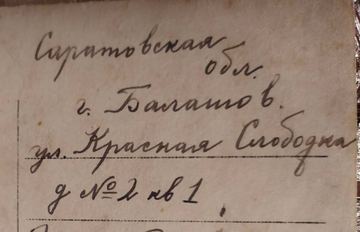 Саратовская
обл.
г. Балашов.
ул. Красная Слободка
д №2 кв 1